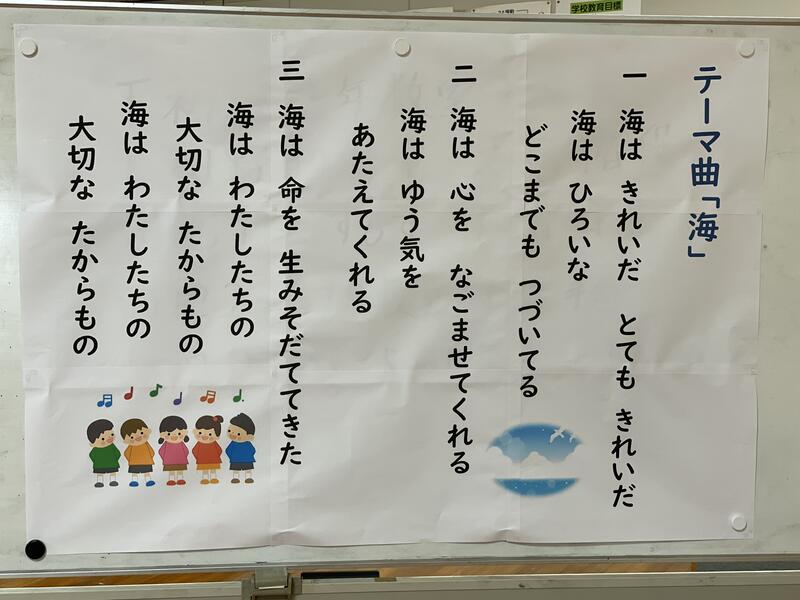 学校教育目標
テーマ曲「海」
一 海は きれいだ とても きれいだ
海は ひろいな
どこまでも つづいてる
二 海は 心を なごませてくれる
海は ゆう気を
あたえてくれる
三 海は 命を 生みそだててきた
海は わたしたちの
大切な たからもの
海は わたしたちの
大切な たからもの